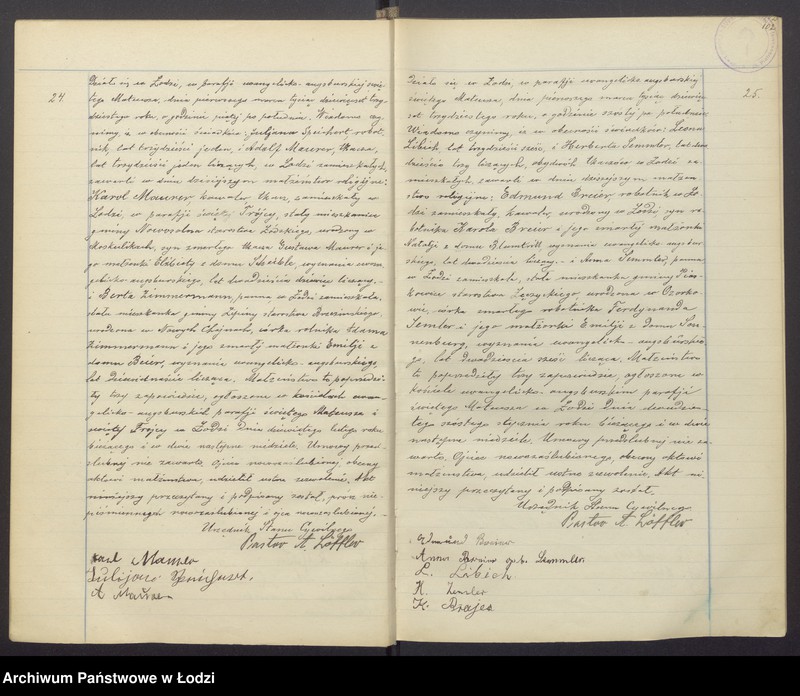 24.
Działo się w Łodzi, w parafji ewangelicko-augsburskiej świę-
tego Mateusza, dnia pierwszego marca tysiąc dziewięćset trzy-
dziestego roku, o godzinie piątej po południu. Wiadomo czy-
nimy, iż w obecności świadków: Juljana robot-
nik, lat trzydzieści jeden, i Adolf Maurer, tkacza,
lat trzydzieści jeden liczących, w Łodzi zamieszkałych,
zawarto w dniu dzisiejszym małżeństwo religijne:
Karol Maurer, kawaler, tkacz, zamieszkały w
Łodzi, w parafji świętej Trójcy, stały mieszkaniec
gminy Nowosolna starostwa Łódzkiego, urodzony w
Moskulikach, syn zmarłego tkacza Gustawa Maurer i je-
go małżonki Elżbiety z domu Scheible, wyznania ewan-
gelicko-augsburskiego, lat dwadzieścia dziewięć liczący,-
i Berta Zimmermann, panna, w Łodzi zamieszkała,
stała mieszkanka gminy Lipiny starostwa Brzezińskiego,
urodzona w Nowych Chojnach, córka rolnika Adama
Zimmermann i jego zmarłej małżonki Emilji z
domu Beier, wyznania ewangelicko-augsburskiego,
lat liczącą. Małżeństwo to poprzedzi-
ły trzy zapowiedzie, ogłoszone w kościołach ewan-
gelicko-augsburskich parafji świętego Mateusza i
świętej Trójcy w Łodzi dnia dziewiątego lutego roku
bieżącego i w dwie następne niedziele. Umowy przed-
ślubnej nie zawarto. Ojciec nowozaślubionej, obecny
aktowi małżeństwa, udzielił ustne zezwolenie. Akt
niniejszy przeczytany i podpisany został, prócz nie-
piśmiennych nowozaślubionej i ojca nowozaślubionej.-
Urzędnik Stanu Cywilnego
Pastor A. Löffler
Karl Maurer
Julijan
A Maurer
25.
Działo się w Łodzi, w parafji ewangelicko-augsburskiej
świętego Mateusza, dnia pierwszego marca tysiąc dziewięć-
set trzydziestego roku, o godzinie szóstej po południu.
Wiadomo czynimy, iż w obecności świadków: Leona
Libich, lat trzydzieści sześć, i Herberta Semmler, lat dwa-
dzieścia trzy liczących, obydwóch tkaczów w Łodzi za-
mieszkałych, zawarto w dniu dzisiejszym małżeń-
stwo religijne: Edmund Breier, robotnik w Ło-
dzi zamieszkały, kawaler, urodzony w Łodzi, syn ro-
botnika Karola Breier i jego zmarłej małżonki
Natalji z domu wyznania ewangelicko-augsbur-
skiego, lat dwadzieścia liczący,- i Anna Semmler, panna
w Łodzi zamieszkała, stała mieszkanka gminy Pias-
kowice starostwa Łęczyckiego, urodzona w Ozorko-
wie, córka zmarłego robotnika Ferdynanda
Semler i jego małżonki Emilji z domu Son-
nenberg, wyznania ewangelicko-augsburskie-
go, lat dwadzieścia sześć liczącą. Małżeństwo
to poprzedziły trzy zapowiedzie, ogłoszone w
kościele ewangelicko-augsburskim parafji
świętego Mateusza w Łodzi dnia dwudzies-
tego szóstego stycznia roku bieżącego i w dwie
następne niedziele. Umowy przedślubnej nie za-
warto. Ojciec nowozaślubionego, obecny aktowi
małżeństwa, udzielił ustne zezwolenie. Akt ni-
niejszy przeczytany i podpisany został.
Urzędnik Stanu Cywilnego
Pastor A. Löffler
Edmund
Anna Semmler
L. Libich
H. Semler
K.
Archiwum Państwowe w Łodzi